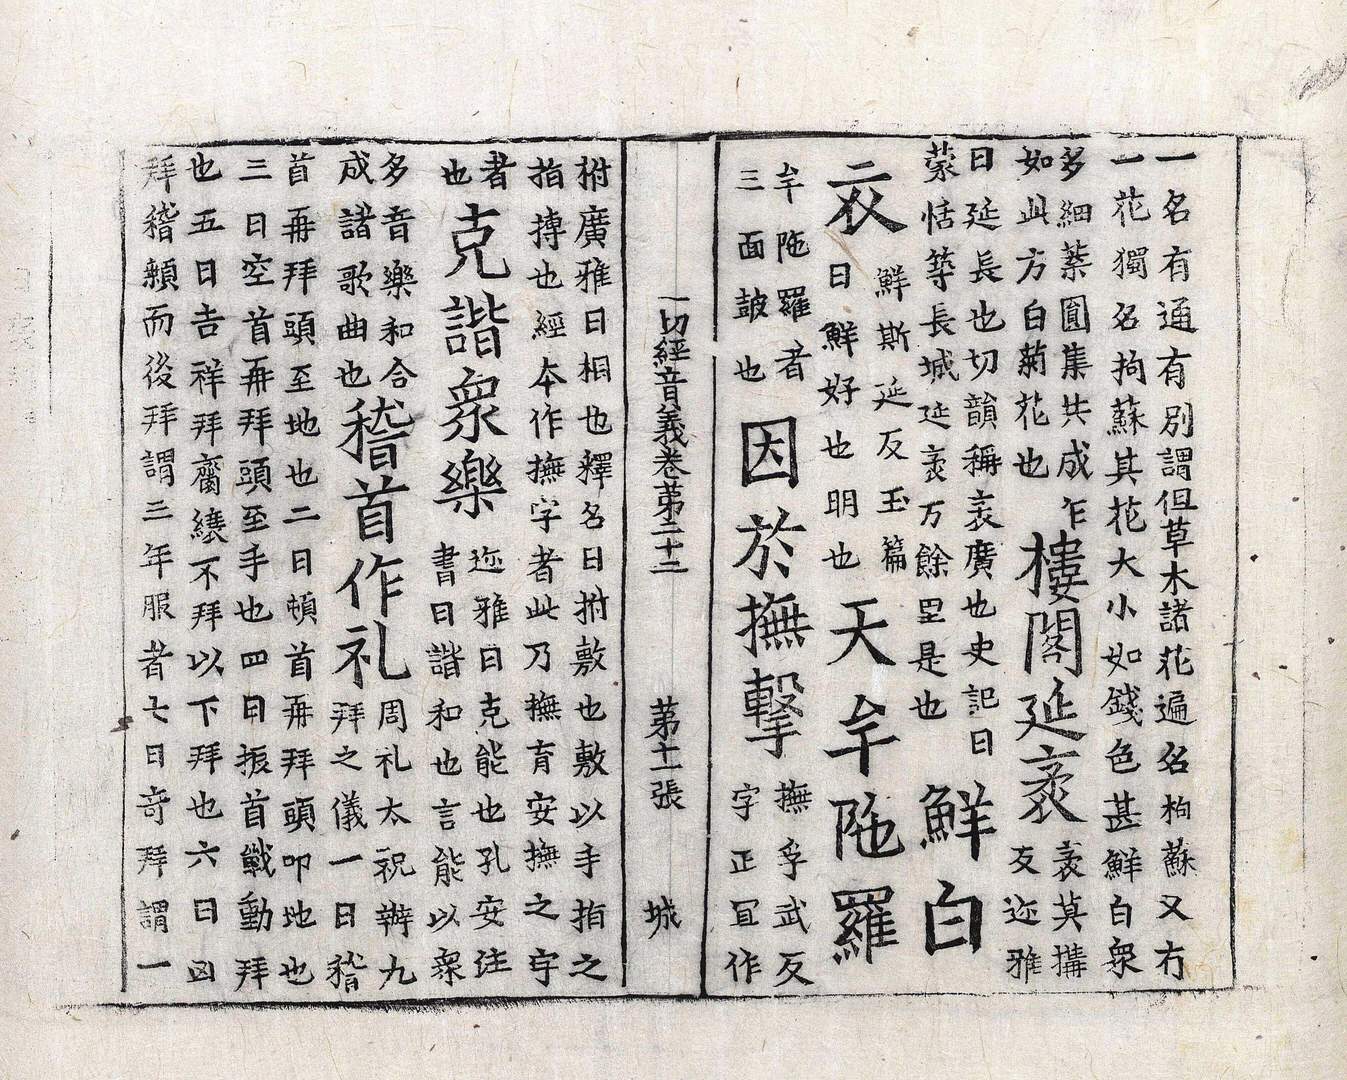 一名有通有別謂但草木諸花遍名枸蘇又有
一花獨名拘蘇其花大小如錢色甚鮮白衆
多細蘂圓集共成乍
如此方白菊花也
樓閣延袤
袤莫搆
反迩雅
曰延長也切韻稱袤廣也史記曰
蒙恬築長城延袤万餘里是也
鮮白
衣
鮮斯延反玉篇
曰鮮好也明也
天牟陁羅
牟陁羅者
三面皷也
因於撫擊
撫孚武反
字正冝作
拊廣雅曰相也釋名曰拊敷也敷以手指之
指搏也經本作撫字者此乃撫育安撫之字
者
也
克諧衆樂
迩雅曰克能也孔安注
書曰諧和也言能以衆
多音樂和合
成諸歌曲也
稽首作礼
周礼太祝辦九
拜之儀一曰稽
首再拜頭至地也二曰頓首再拜頭叩地也
三曰空首再拜頭至手也四曰振首戰動拜
也五曰吉祥拜齊繞不拜以下拜也六曰凶
拜稽顙而後拜謂三年服者七曰奇拜謂一
一切經音義卷第二十二
第十一張
城